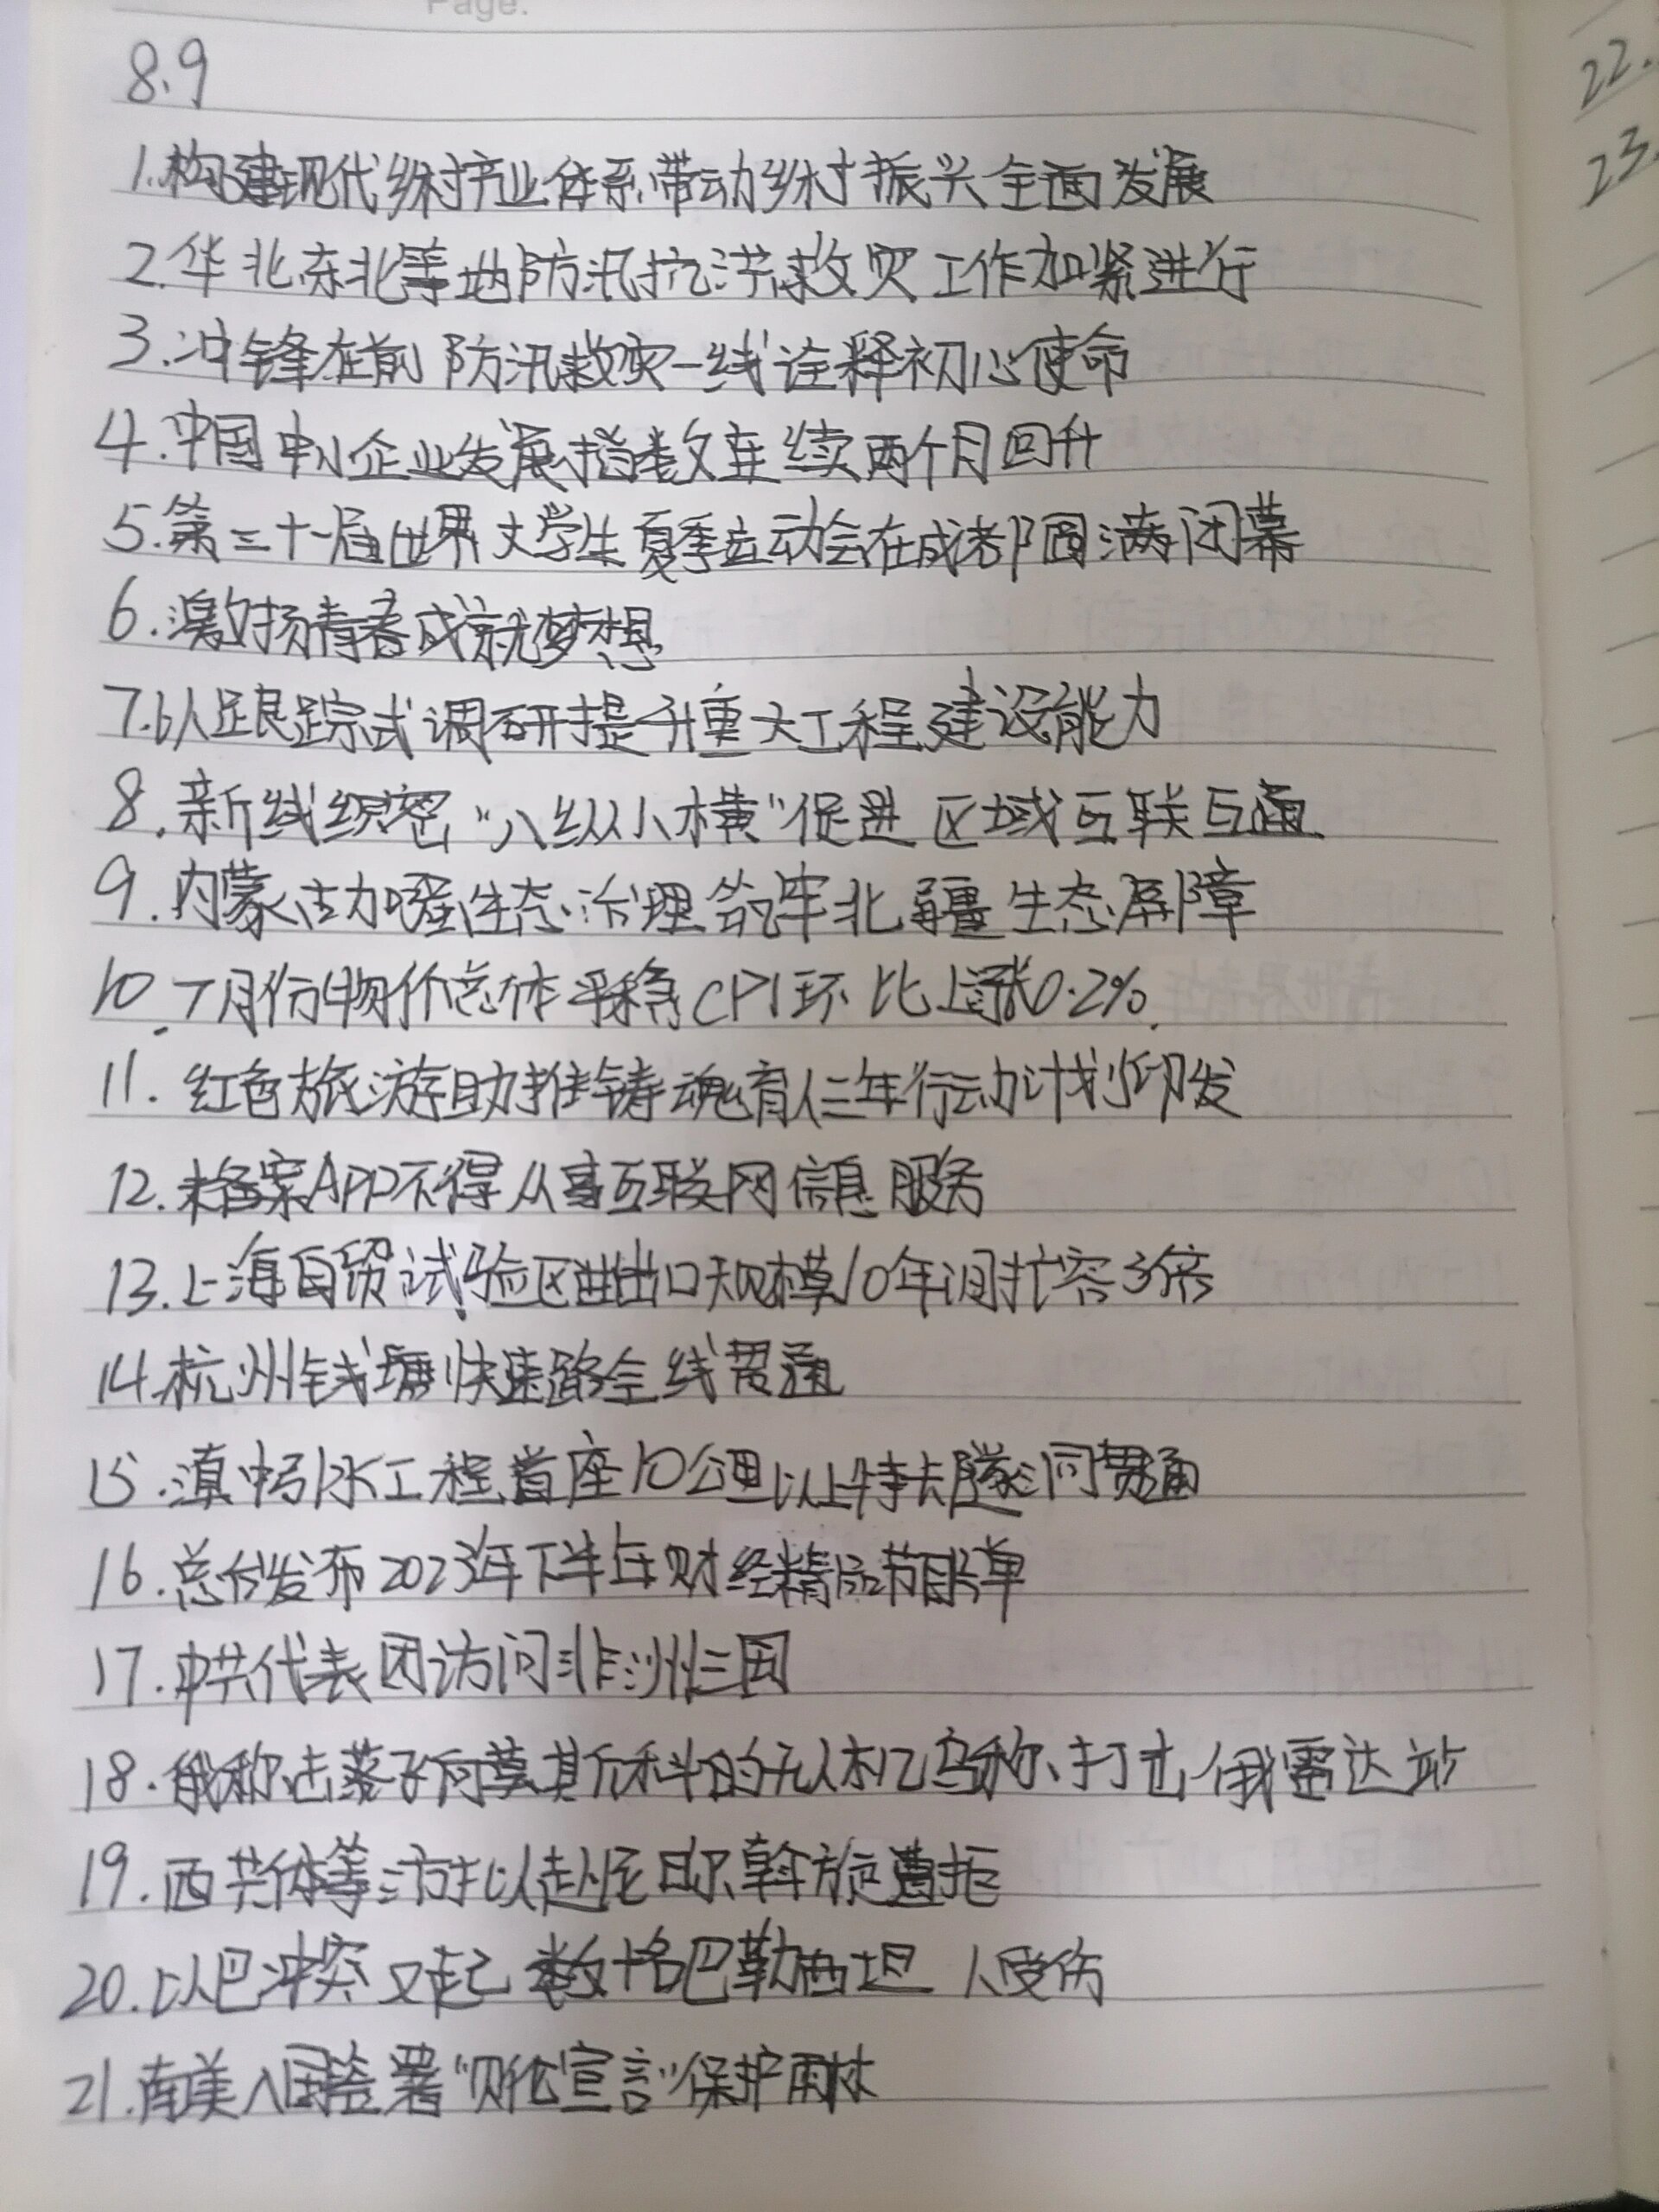 Page.
8.9
1.构建现代乡村产业体系带动乡村振兴全面发展
2.华北东北等地防汛抗洪救灾工作加紧进行
3.冲锋在前 防汛救灾一线诠释初心使命
4.中国中小企业发展指数连续两个月回升
5.第三十一届世界大学生夏季运动会在成都圆满闭幕
6.激扬青春成就梦想
7.以跟踪式调研提升重大工程建设能力
8.新线织密“八纵八横”促进区域互联互通
9.内蒙古加强生态治理筑牢北疆生态屏障
10.7月份物价总体平稳CPI环比上涨0.2%
11.红色旅游助推铸魂育人三年行动计划印发
12.未备案APP不得从事互联网信息服务
13.上海自贸试验区进出口规模10年间扩容3倍
14.杭州钱塘快速路全线贯通
15.滇中引水工程首座10公里以上特长隧洞贯通
16.总台发布2023年下半年财经精品节目片单
17.中共代表团访问非洲三国
18.俄称击落飞向莫斯科的无人机乌称打击俄雷达站
19.西共体等三方拟赴尼日尔斡旋遭拒
20.以巴冲突又起 数十名巴勒斯坦人受伤
21.南美八国签署“贝伦宣言”保护雨林
22.
23.